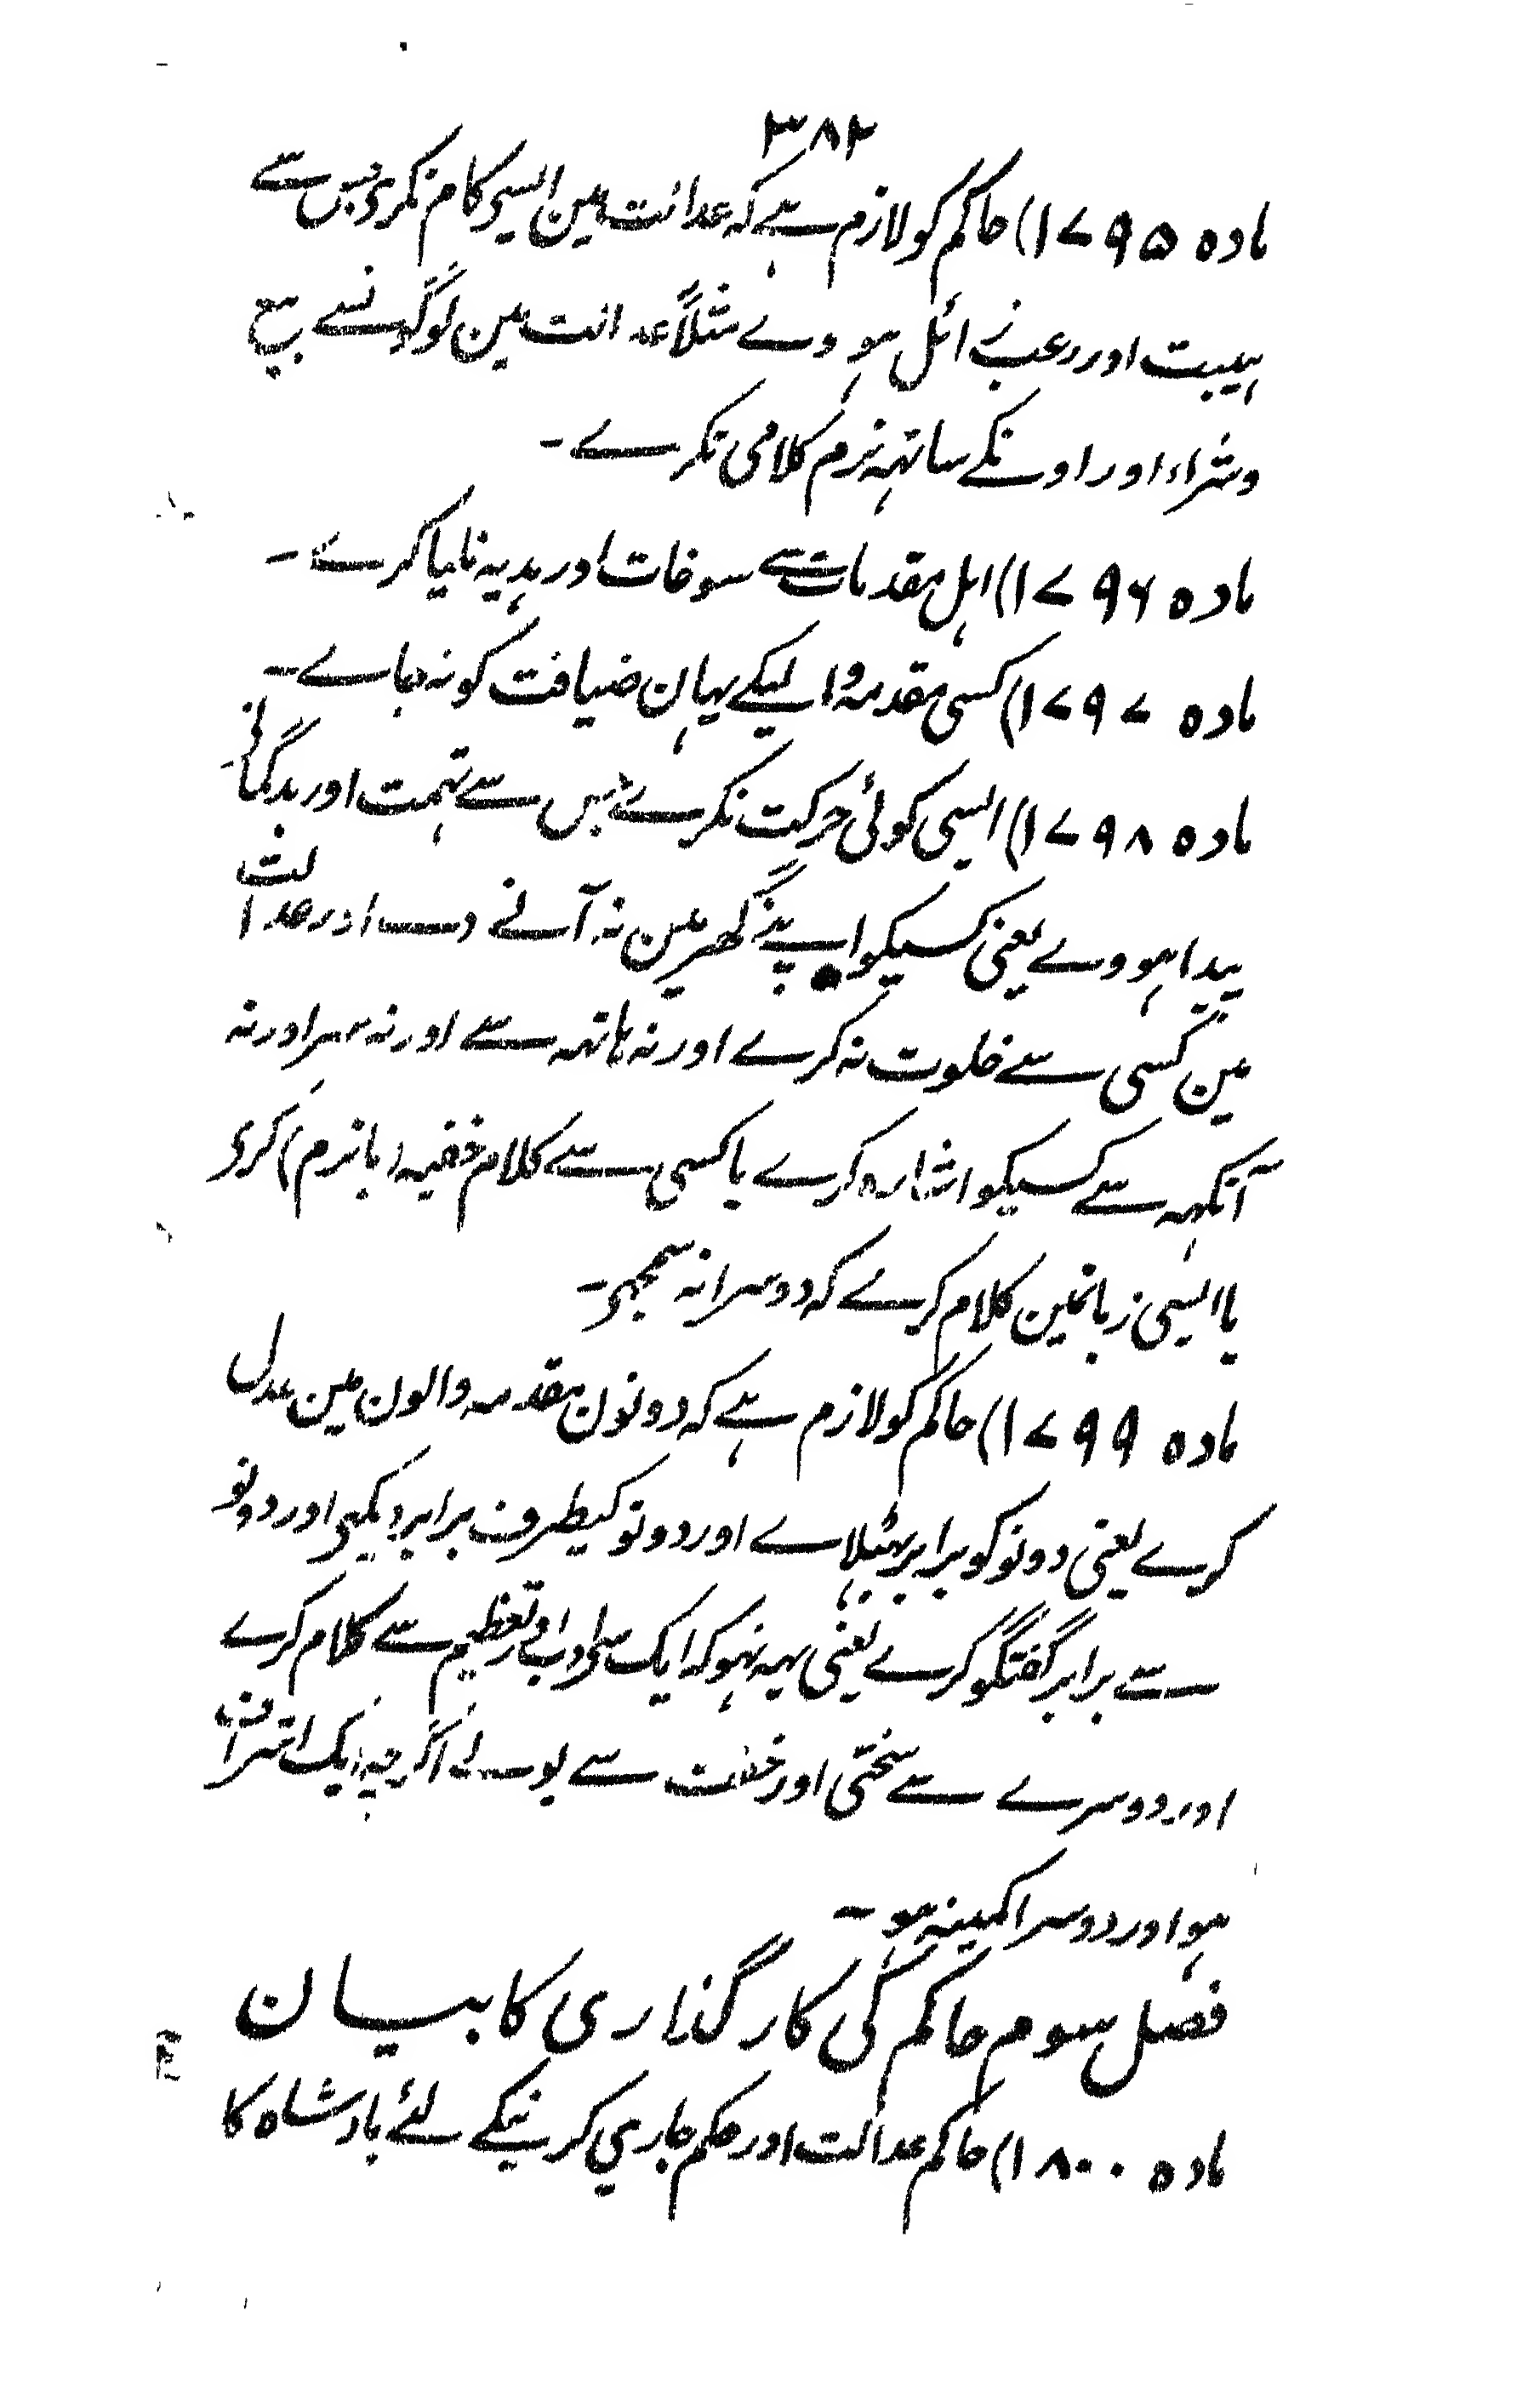 ۳۸۲
مادہ ۱۷۹۵) حاکم کو لازم ہے کہ عدالت مین ایسی کام نکری جس سے
ہیبت اور رعب زائل ہووے مثلاً عدالت مین لوگونسے بیع
وشراء اور اونکے ساتہہ نرم کلامی نکرے ۔
مادہ ۱۷۹۶) اہل مقدمات سے سوغات اور ہدیہ نالیا کرے ۔
مادہ ۱۷۹۷) کسی مقدمہ والیکے یہان ضیافت کو نہ جاے ۔
مادہ ۱۷۹۸) ایسی کوئی حرکت نکرے جس سے تہمت اور بدگمانی
پیدا ہووے یعنی کسیکو اپنے گھر مین نہ آنے دے اور عدالت
مین کسی سے خلوت نہ کرے اور نہ ہاتہہ سے اور نہ سر اور نہ
آنکہہ سے کسیکو اشارہ کرے یا کسی سے کلام خفیہ (یا نرم) کری
یا ایسی زبانمین کلام کرے کہ دوسرا نہ سمجہی ۔
مادہ ۱۷۹۹) حاکم کو لازم ہے کہ دونون مقدمہ والون مین عدل
کرے یعنی دونو کو برابر بہٹلاے اور دونو کیطرف برابر دیکہی اور دونو
سے برابر گفتگو کرے یعنی یہہ نہو کہ ایک سے اداب اور تعظیم سے کلام کرے
اور دوسرے سے سختی اور خفت سے بولے اگرچہ ایک اشراف
ہو اور دوسرا کمینہ ہو ۔
فصل سوم حاکم کی کارگذاری کا بیان
مادہ ۱۸۰۰) حاکم عدالت اور حکم جاری کرنیکے لئے بادشاہ کا